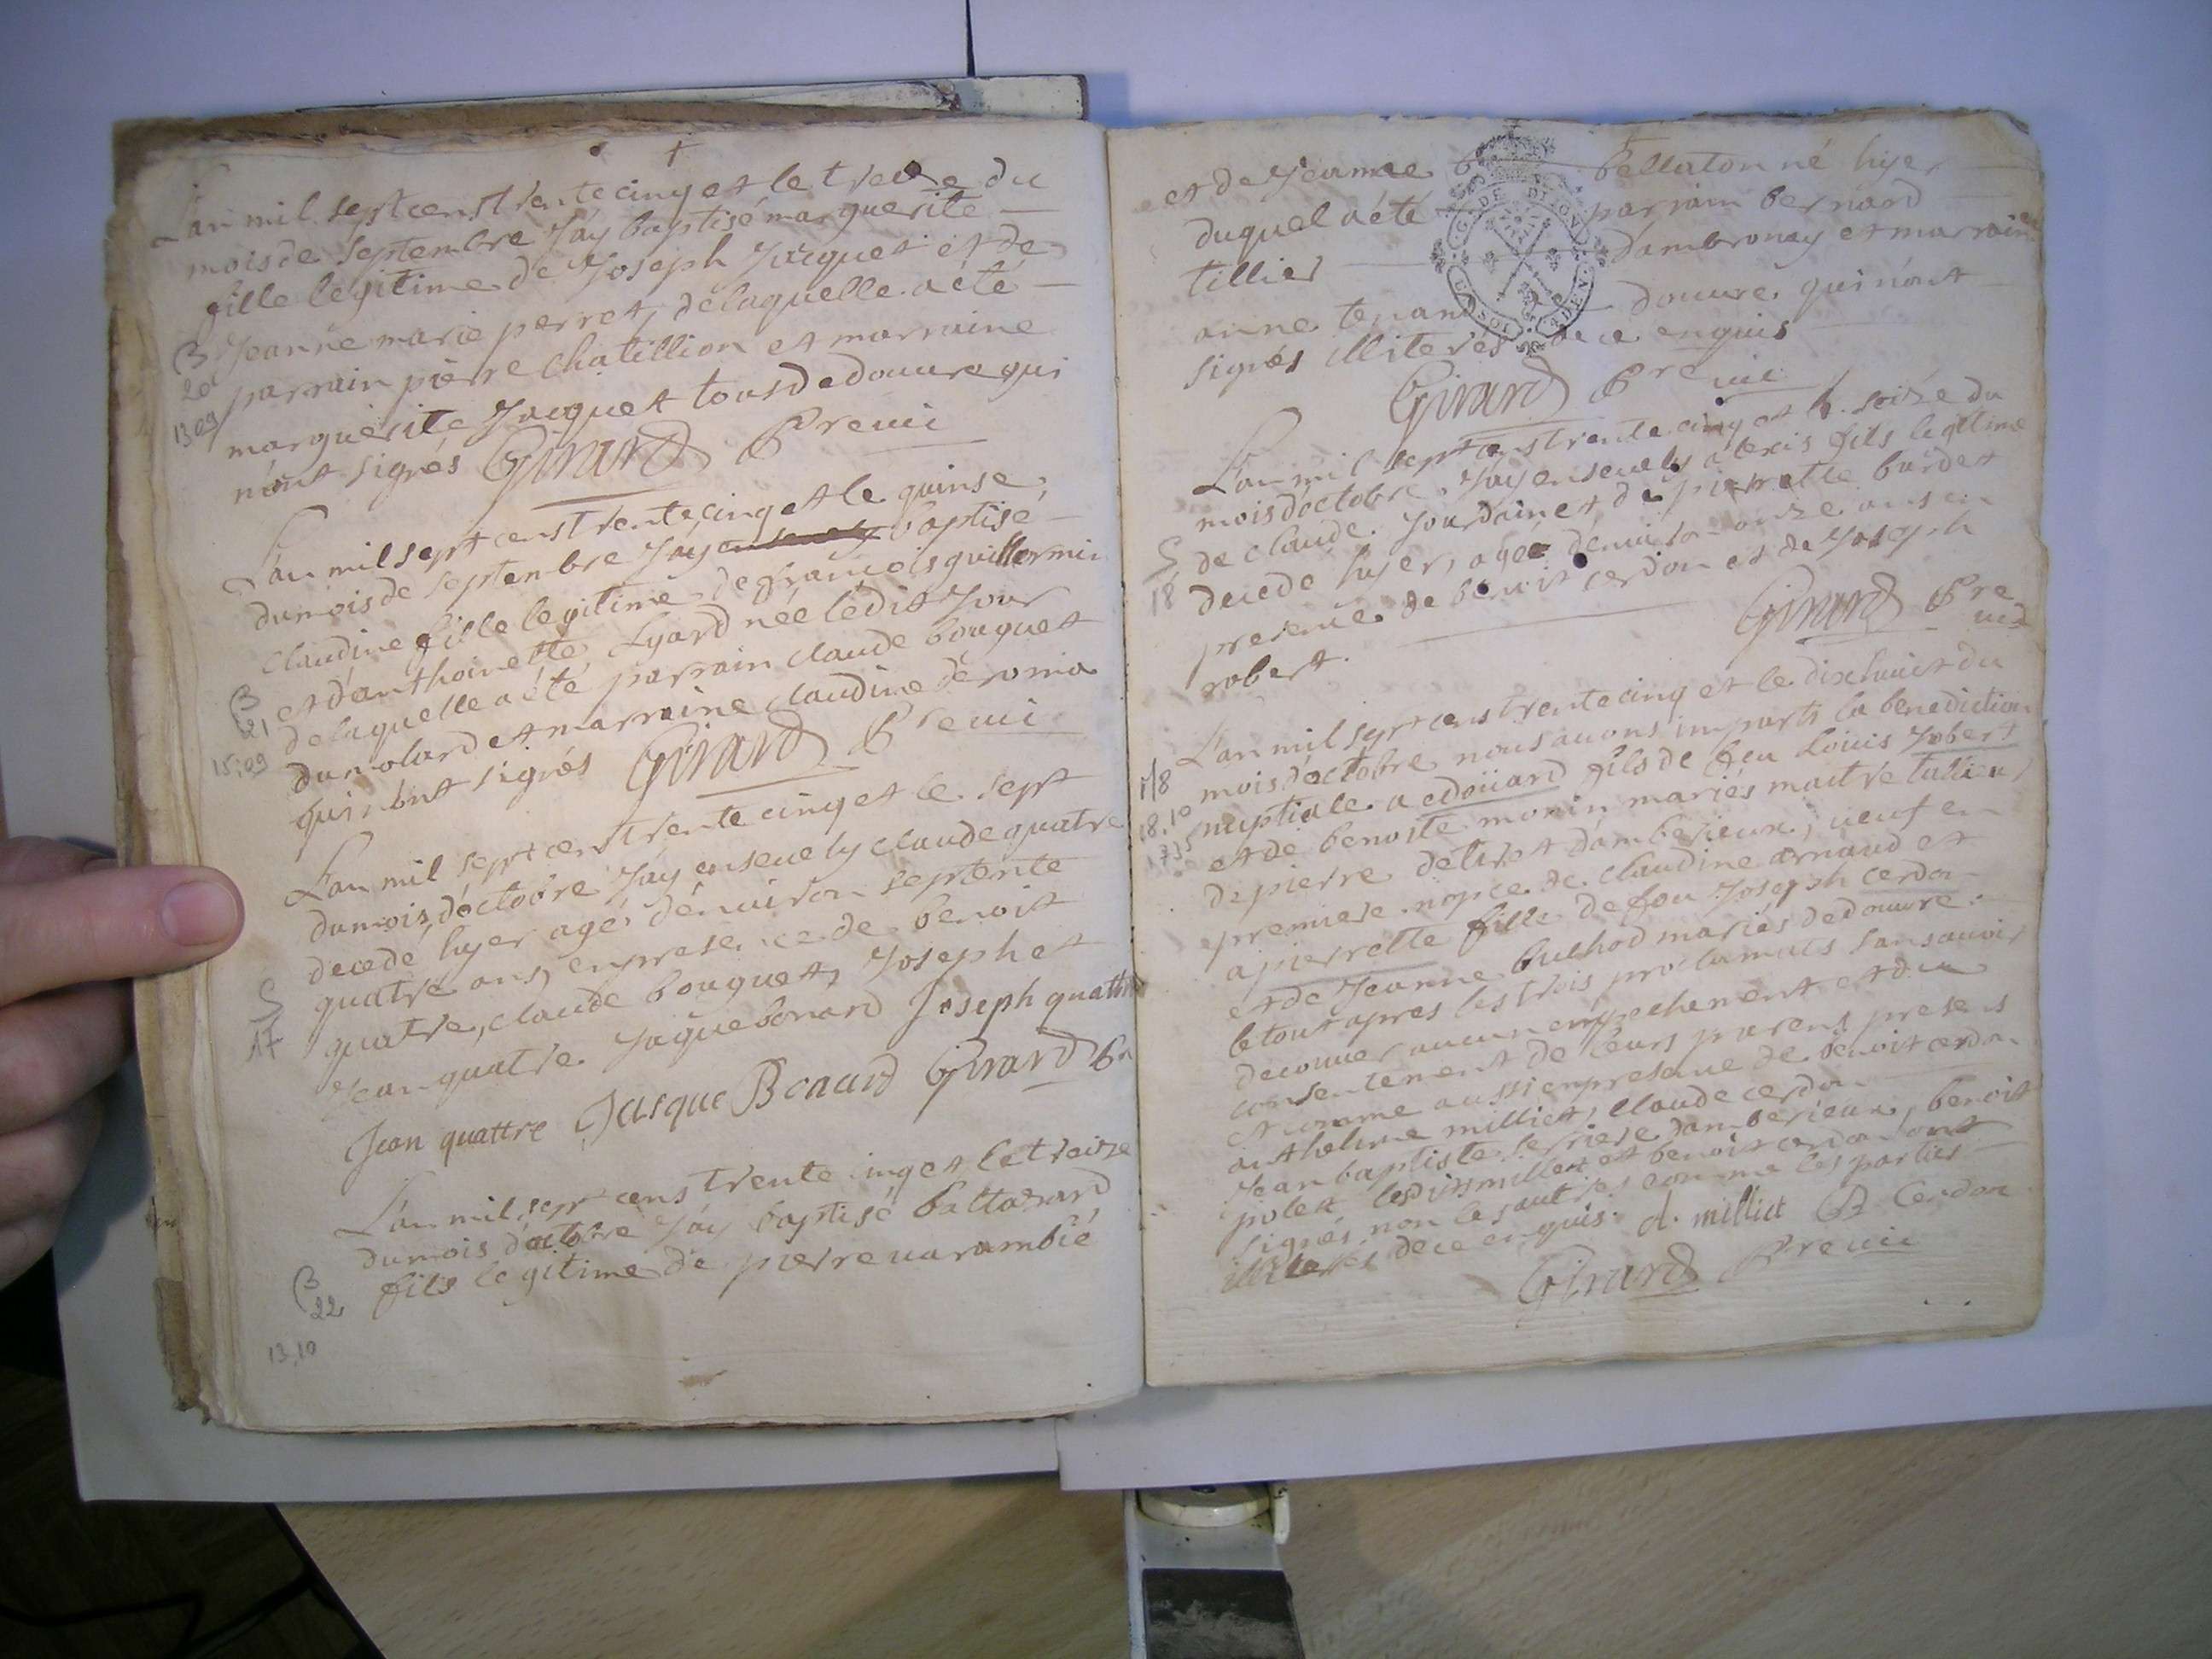 +
L'an mil sept cens trente cinq et le treize du
mois de septembre J'ay baptisé marguerite
fille legitime de Joseph Jacquet et de
Jeanne marie perret, de laquelle a été
parrain pierre Chatillion et marraine
marguerite Jacquet tous de douvre qui
n'ont signés Girard Pre vic
B
20
13 09
L'an mil sept cens trente cinq et le quinse
du mois de septembre J'ay ensevely baptisé
Claudine fille legitime de françois guillermin
et d'anthoinette Lyard née ledit Jour
de laquelle a été parrain claude bouquet
du molard et marraine claudine deroma
qui n'ont signés Girard Pre vic
B
21
15.09
L'an mil sept cens trente cinq et le sept
du mois d'octobre J'ay ensevely claude quatre
decedé hyer agé d'environ septente
quatre ans, en presence de benoit
quatre, claude bouquet, Joseph et
Jean quatre Jaque bonard Joseph quattre
Jean quattre Jacque Bonard Girard Pre
S
17
L'an mil sept cens trente cinq et le treize
du mois d'octobre J'ay baptisé baltazard
fils legitime de pierre varambié
B
22
13.10
et de Jeanne bellaton né hyer
duquel a été parrain bernard
tillier d'ambronay et marraine
anne tenand de douvre, qui n'ont
signés illiterés de ce enquis
Girard Pre vic
L'an mil sept cens trente cinq et le seize du
mois d'octobre J'ay ensevely alexis fils legitime
de claude Jourdain et de pierrette burdet
decedé hyer, agé d'environ onze ans en
presence de benoit cerdon et de Joseph
robert. Girard Pre
vic
S
18
L'an mil sept cens trente cinq et le dixhuict du
mois d'octobre nous avons imparti la benediction
nuptiale a edoüard fils de feu Louis Jobert
et de benoite morin mariés maitre tallieur
de pierre de tiret d'amberieux, veuf en
premiere nopce de claudine arnaud et
a pierrette fille de feu Joseph cerdon
et de Jeanne bulhod mariés de douvre.
le tout apres les trois proclamats sans avoir
decouver aucun empechement et du
consentement de leurs parens presens
et comme aussi en presence de benoit cerdon
anthelme milliet, claude cerdon
Jean baptiste ferriere d'amberieux, benoit
polet lesdits milliet et benoit cerdon ont
signés, non les autres comme les parties
illiterés de ce enquis. A. milliet B Cerdon
Girard Pre vic
M8
18.10
1735
G. DE DIJON